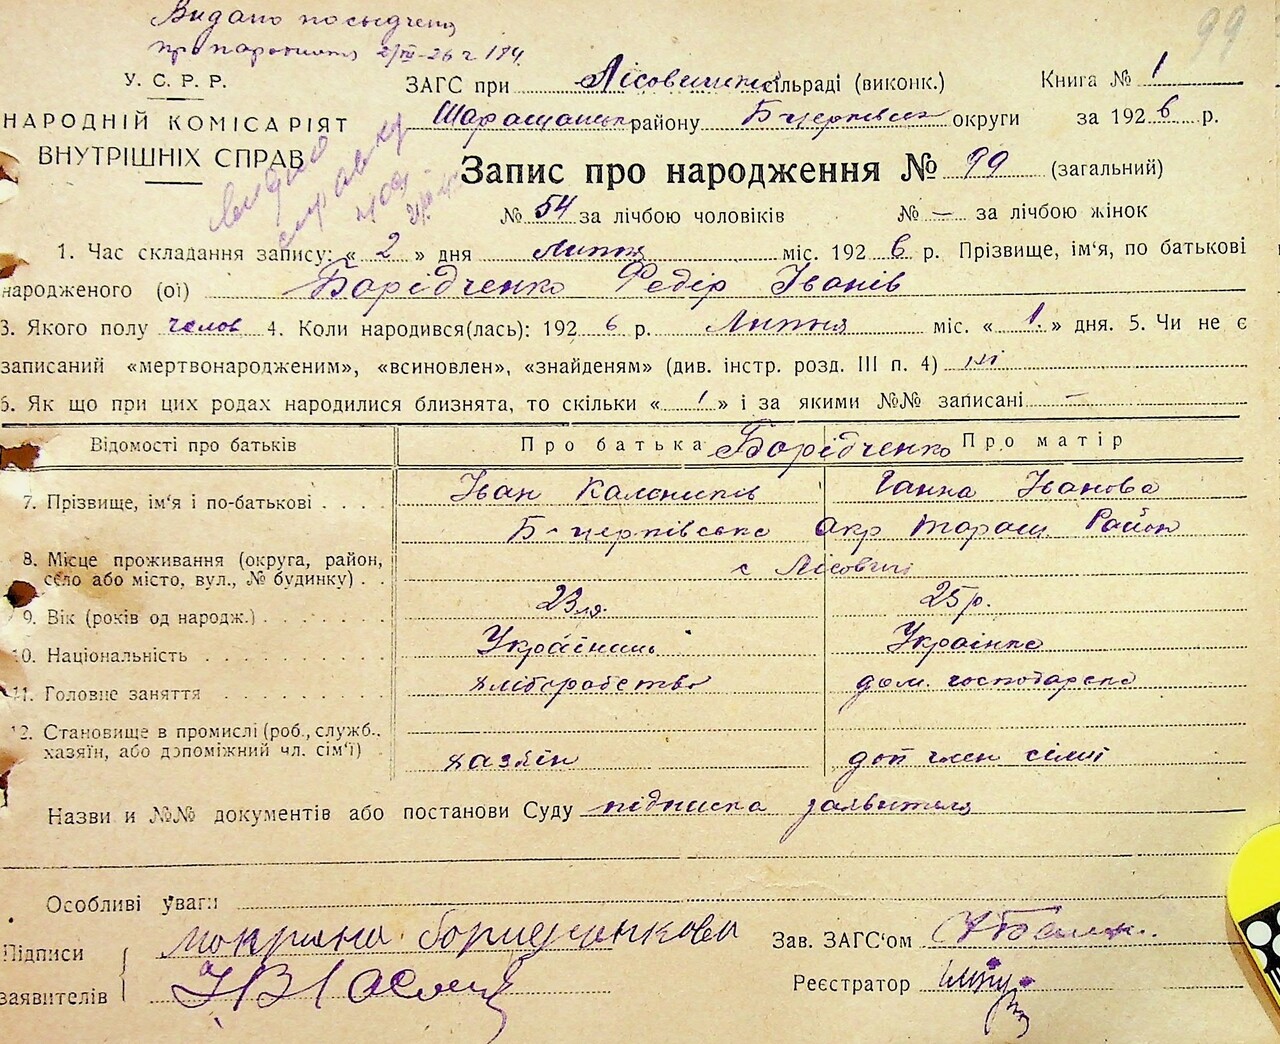 Видано посвідчення
про народження 2/VII-26 г 184.
99
У. С. Р. Р.
НАРОДНІЙ КОМІСАРІЯТ
ВНУТРІШНІХ СПРАВ
видано справку
ЗАГС при Лісовицькій сільраді (виконк.) Книга № 1
Таращанськ району Б-церківськ округи за 1926 р.
Запис про народження № 99 (загальний)
№ 54 за лічбою чоловіків № — за лічбою жінок
1. Час складання запису: « 2 » дня Липня міс. 1926 р. Прізвище, ім'я, по батькові
народженого (ої) Борідченко Федір Іванів
3. Якого полу чолов 4. Коли народився(лась): 1926 р. Липня міс. « 1. » дня. 5. Чи не є
записаний «мертвонародженим», «всиновлен», «знайденям» (див. інстр. розд. III п. 4) ні
6. Як що при цих родах народилися близнята, то скільки « 1 » і за якими №№ записані —
Відомості про батьків Про батька Борідченко Про матір
7. Прізвище, ім'я і по-батькові . . . . Іван Калеників Ганна Іванова
Б-церківсько Окр Тараш Район
8. Місце проживання (округа, район, село або місто, вул., № будинку) . . с Лісовичі
9. Вік (років од народж.) 23 25 р.
10. Національність Українець Українка
11. Головне заняття хліборобство дом. господарка
12. Становище в промислі (роб., служб., хазяїн, або допоміжний чл. сім'ї) хазяїн доп член сімї
Назви и №№ документів або постанови Суду підписка заявителя
Особливі уваги
Підписи заявителів Мокрина Боридченкова
Зав. ЗАГС'ом
Реєстратор